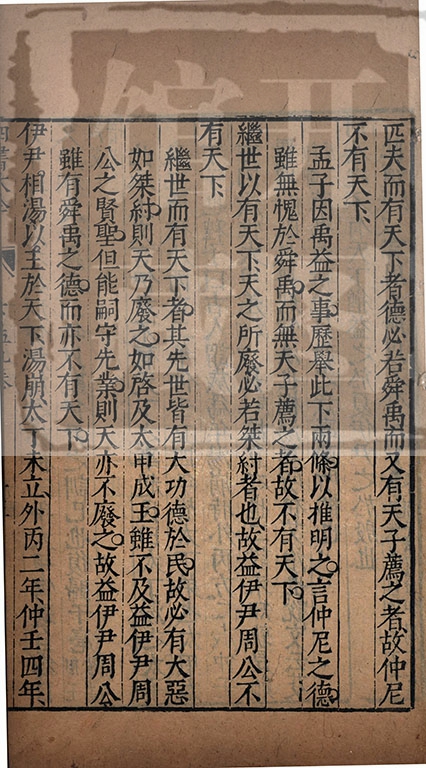 匹夫而有天下者德必若舜禹而又有天子薦之者故仲尼
不有天下
孟子因禹益之事歷舉此下兩條以推明之言仲尼之德
雖無愧於舜禹而無天子薦之者故不有天下
繼世以有天下天之所廢必若桀紂者也故益伊尹周公不
有天下
繼世而有天下者其先世皆有大功德於民故必有大惡
如桀紂則天乃廢之如啓及太甲成王雖不及益伊尹周
公之賢聖但能嗣守先業則天亦不廢之故益伊尹周公
雖有舜禹之德而亦不有天下
伊尹相湯以王於天下湯崩太丁未立外丙二年仲壬四年